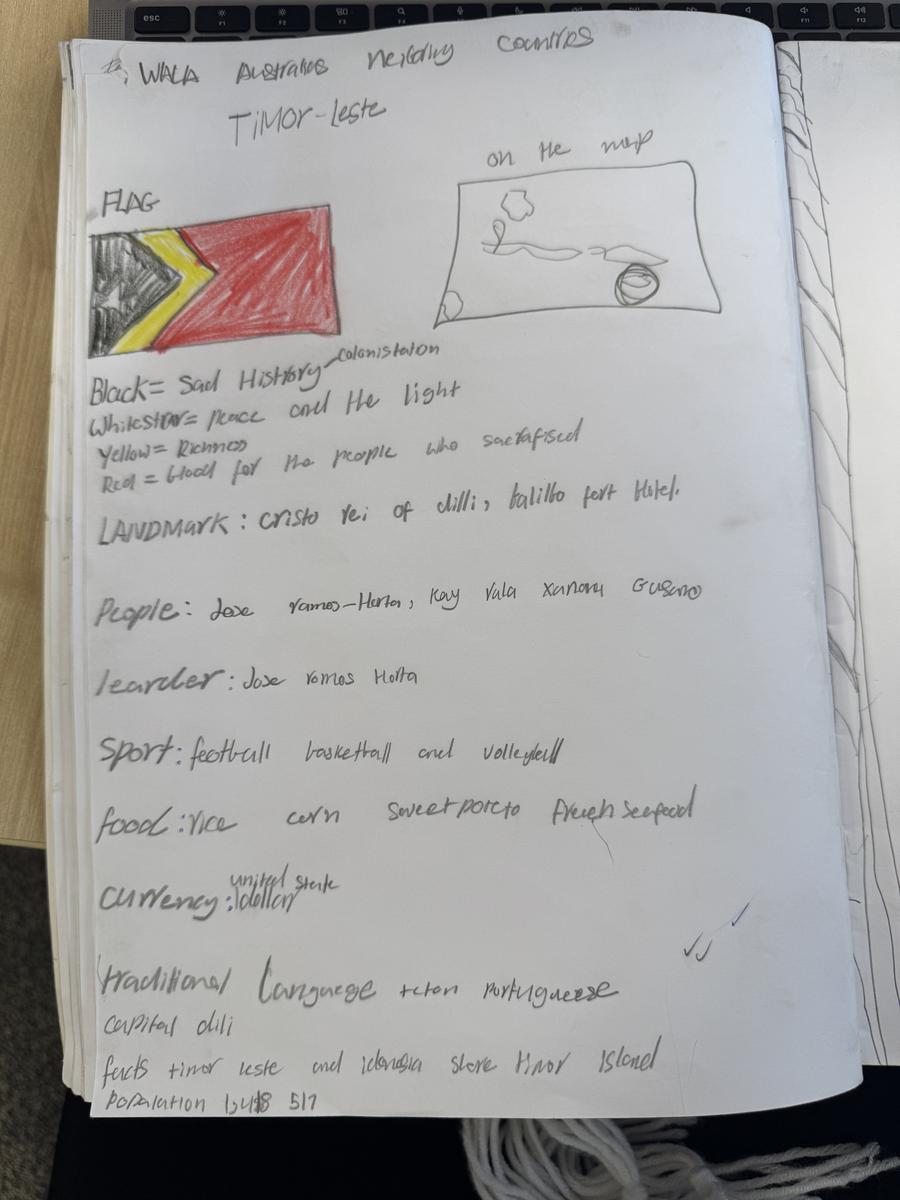 WALA Australias neighboring Countries
TiMOR-Leste
on the map
FLAG
Black= Sad Histrory colonistaion
Whitestar= peace and the light
Yellow= Richness
Red = blood for the people who sacrafised
LANDMARK: cristo rei of dilli, balibo fort Hotel.
People: Jose ramos-Horta, Kay rala xanana Gusano
learder: Jose ramos Horta
Sport: football basketball and volleyball
food: rice corn sweet poteto fresh seafood
currency: united state dollar
traditional Language tetan Portugueese
capital dili
facts timor leste and idonesia share timor Island
Population 517